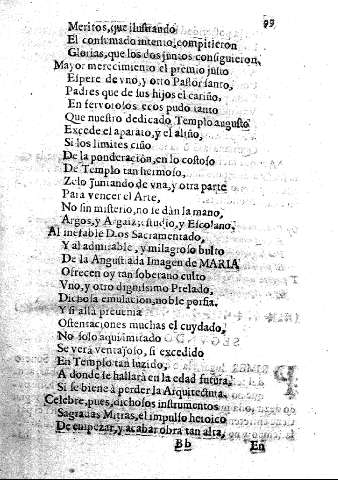 99
Meritos, que ilustrando
El consumado intento, compitieron
Glorias, que los dos juntos consiguieron,
Mayor merecimiento el premio justo
Espere de vno, y otro Pastor santo,
Padres que de sus hijos el cariño,
En fervorosos ecos pudo tanto
Que nuestro dedicado Templo augusto
Excede el aparato, y el aliño,
Si los limites ciño
De la ponderacion, en lo costoso
De Templo tan hermoso,
Zelo Juntando de vna, y otra parte
Para vencer el Arte,
No sin misterio, no se dàn la mano,
Argos, y Argaiz; studio, y Escolano.
Al inefable Dios Sacramentado,
Y al admirable, y milagroso bulto
De la Angustiada Imagen de MARIA
Ofrecen oy tan soberano culto
Vno, y otro dignissimo Prelado,
Dichosa emulacion, noble porfia.
Y si allà prevenia
Ostentaciones muchas el cuydado,
No solo aqui imitado
Se verà ventajoso, si excedido
En Templo tan luzido,
A donde se hallarà en la edad futura,
Si se biene à perder la Arquitectura.
Celebre, pues, dichosos instrumentos
Sagradas Mitras, el impulso heroico
De empezar, y acabar obra tan alta,
Bb
En